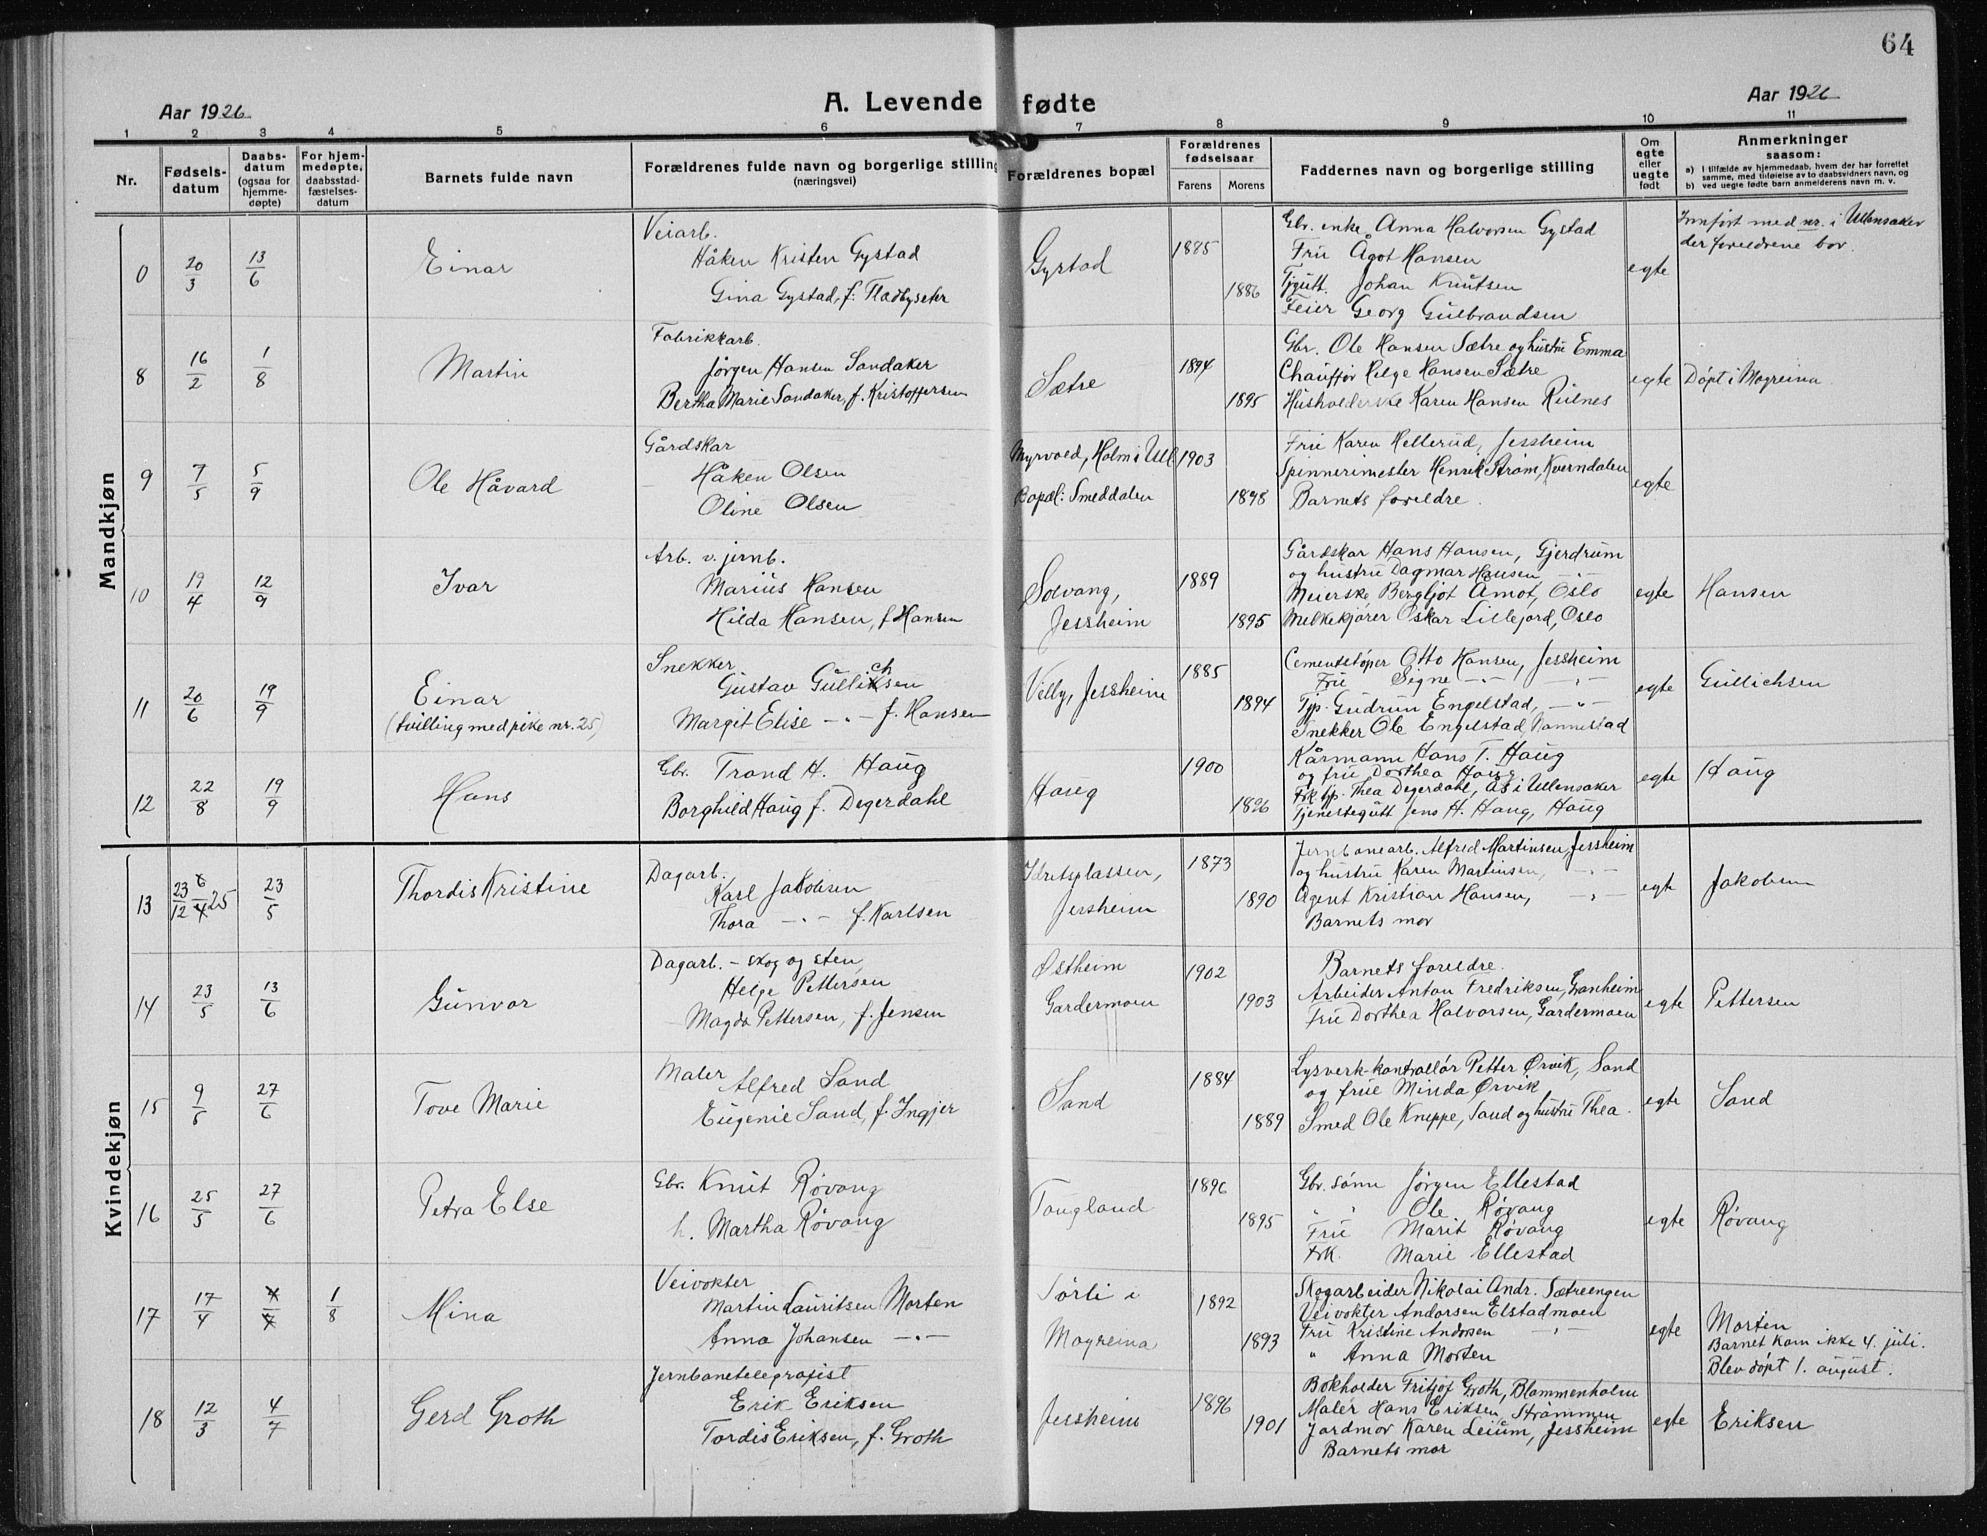 64
Aar 1926
A. Levende fødte
Aar 1926
1 2 3 4 5 6 7 8 9 10 11
Nr.
Fødsels-
datum
Daabs-
datum
(ogsaa for
hjemme-
døpte)
For hjem-
medøpte,
daabsstad-
fæstelses-
datum
Barnets fulde navn
Forældrenes fulde navn og borgerlige stilling
(næringsvei)
Forældrenes bopæl
Forældrenes
fødselsaar
Farens Morens
Faddernes navn og borgerlige stilling
Om
egte
eller
uegte
født
Anmerkninger
saasom:
a) I tilfælde av hjemmedaab, hvem der har forrettet
samme, med tilføielse av to daabsvidners navn, og
b) ved uegte fødte barn anmelderens navn m. v.
Mandkjøn
0 20/3 13/6 Einar
Veiarb.
Håken Kristen Gystad
Gina Gystad, f. Fladbyseter
Gystad 1885 1886
Gbr. enke Anna Halvorsen Gystad
Fru Ågot Hansen
Tjgutt. Johan Knutsen
Feier Georg Gulbrandsen
egte
Innført med nr. i Ullensaker
der foreldrene bor.
8 16/2 1/8 Martin
Fabrikkarb.
Jørgen Hansen Sandaker
Bertha Marie Sandaker, f. Kristoffersen
Sætre 1894 1895
Gbr. Ole Hansen Sætre og hustru Emma
Chauffør Helge Hansen Sætre
Husholderske Karen Hansen Rulnes
egte Døpt i Mogreina
9 7/5 5/9 Ole Håvard
Gårdskar
Håken Olsen
Oline Olsen
Myrvold, Holm i Ull.
Bopæl: Smeddalen
1903 1898
Fru Karen Hellerud, Jessheim
Spinnerimester Henrik Strøm, Kverndalen
Barnets foreldre.
egte
10 19/4 12/9 Ivar
Arb. v. jernb.
Marius Hansen
Hilda Hansen, f. Hansen
Solvang,
Jessheim
1889 1895
Gårdskar Hans Hansen, Gjerdrum
og hustru Dagmar Hansen —"—
Meierske Bergljot Åmot, Oslo
Melkekjører Oskar Lillejord, Oslo
egte Hansen
11 20/6 19/9 Einar
(tvilling med pike nr. 25)
Snekker
Gustav Gullichsen
Margit Elise —"— f. Hansen
Velly, Jessheim 1885 1894
Cementstøper Otto Hansen, Jessheim
Fru Signe —"— —"—
Tjp. Gudrun Engelstad, —"—
Snekker Ole Engelstad, Nannestad
egte Gullichsen
12 22/8 19/9 Hans
Gbr. Trond H. Haug
Borghild Haug f. Degerdahl
Haug 1900 1896
Kårmann Hans T. Haug
og fru Dorthea Haug
Frk tjp. Thea Degerdahl, Ås i Ullensaker
Tjenestegutt Jens H. Haug, Haug
egte Haug
Kvindekjøn
13 23/12 6/4 25 23/5 Thordis Kristine
Dagarb.
Karl Jakobsen
Thora —"— f. Karlsen
Idretsplassen,
Jessheim
1873 1890
Jernbanearb. Alfred Martinsen, Jessheim
og hustru Karen Martinsen, —"—
Agent Kristian Hansen, —"—
Barnets mor
egte Jakobsen
14 23/5 13/6 Gunvor
Dagarb. - skog og sten
Helge Pettersen
Magda Pettersen, f. Jensen
Østheim
Gardermoen
1902 1903
Barnets foreldre.
Arbeider Anton Fredriksen, Granheim
Fru Dorthea Halvorsen, Gardermoen
egte Pettersen
15 9/5 27/6 Tove Marie
Maler
Alfred Sand
Eugenie Sand, f. Ingjer
Sand 1884 1889
Lysverk-kontrollør Petter Ørvik, Sand
og frue Minda Ørvik
Smed Ole Kneppe, Sand og hustru Thea.
egte Sand
16 25/5 27/6 Petra Else
Gbr. Knut Røvang
h. Martha Røvang
Taugland 1896 1895
Gbr. sønn Jørgen Ellestad
" " Ole Røvang
Fru Marit Røvang
Frk. Marie Ellestad
egte Røvang
17 17/4 4/7 1/8 Mina
Veivokter
Martin Lauritsen Morten
Anna Johansen —"—
Sørli i
Mogreina
1892 1893
Skogarbeider Nikolai Andr. Sætreengen
Veivokter Andorsen Elstadmoen
Fru Kristine Andorsen —"—
" Anna Morten
egte
Morten
Barnet kom ikke 4. juli.
Blev døpt 1. august.
18 12/3 4/7 Gerd Groth
Jernbanetelegrafist
Erik Eriksen
Tordis Eriksen, f. Groth
Jessheim 1896 1901
Bokholder Fritjof Groth, Blommenholm
Maler Hans Eriksen, Strømmen
Jordmor Karen Leium, Jessheim
Barnets mor
egte Eriksen